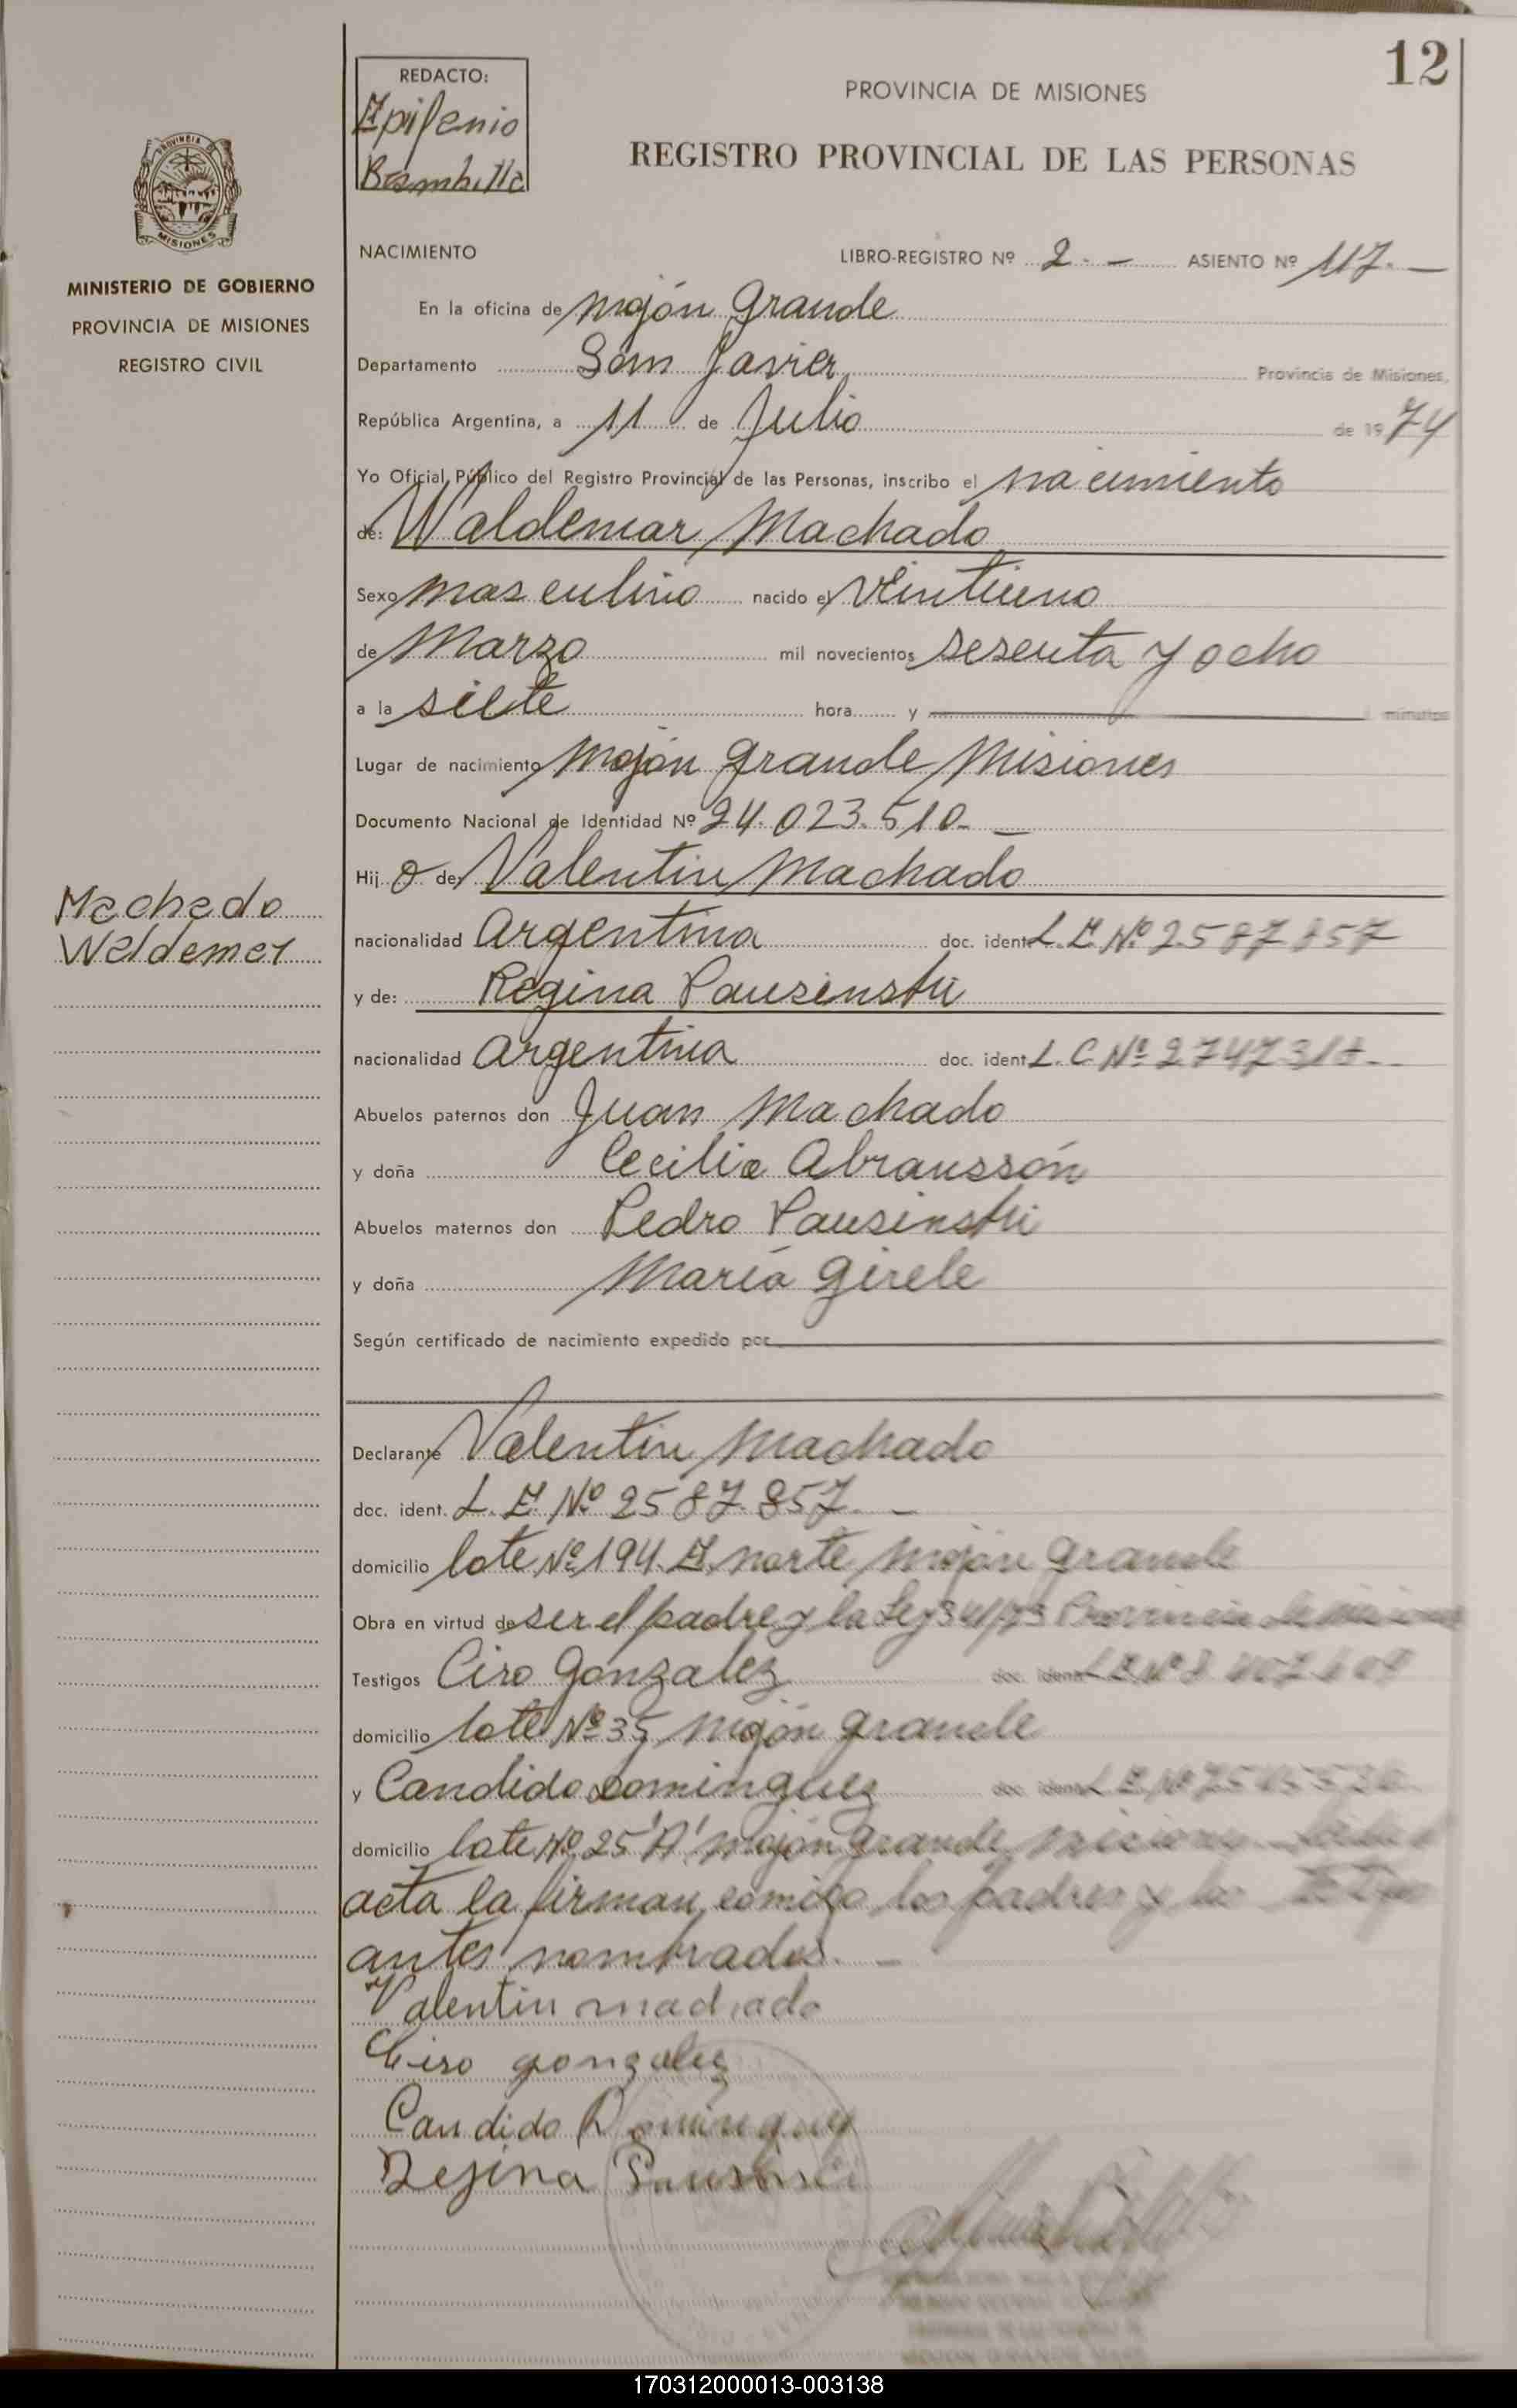 12
REDACTO:
Epifenio
Brambilla
PROVINCIA DE MISIONES
REGISTRO PROVINCIAL DE LAS PERSONAS
PROVINCIA DE
MISIONES
MINISTERIO DE GOBIERNO
PROVINCIA DE MISIONES
REGISTRO CIVIL
NACIMIENTO LIBRO-REGISTRO Nº 2.- ASIENTO Nº 117.-
En la oficina de Mojón Grande
Departamento San Javier Provincia de Misiones,
República Argentina, a 11 de Julio de 1974
Yo Oficial Público del Registro Provincial de las Personas, inscribo el nacimiento
de: Waldemar Machado
Sexo masculino nacido el veintiuno
de Marzo mil novecientos sesenta y ocho
a la siete hora y minutos
Lugar de nacimiento Mojón Grande Misiones
Documento Nacional de Identidad Nº 24.023.510.-
Hijo de: Valentin Machado
Machado
Waldemar
nacionalidad Argentina doc. ident. L.E Nº 2587857
y de: Regina Pausinski
nacionalidad Argentina doc. ident. L.C Nº
Abuelos paternos don Juan Machado
y doña Cecilia Abraussón
Abuelos maternos don Pedro Pausinski
y doña María Girele
Según certificado de nacimiento expedido por
Declarante Valentin Machado
doc. ident. L.E. Nº 2587.857.-
domicilio lote Nº 194. E. norte Mojón Grande
Obra en virtud de ser el padre y la Ley 341/73 Provincia de Misiones
Testigos Ciro Gonzalez doc. ident. L.E Nº
domicilio lote Nº 35 Mojón Grande
y Candido Dominguez doc. ident. L.E Nº
domicilio lote Nº 25 'A' Mojón Grande Misiones
acta la firman comigo los padres y los testigos
antes nombrados.-
Valentin machado
Ciro gonzalez
Candido Dominguez
Regina
170312000013-003138